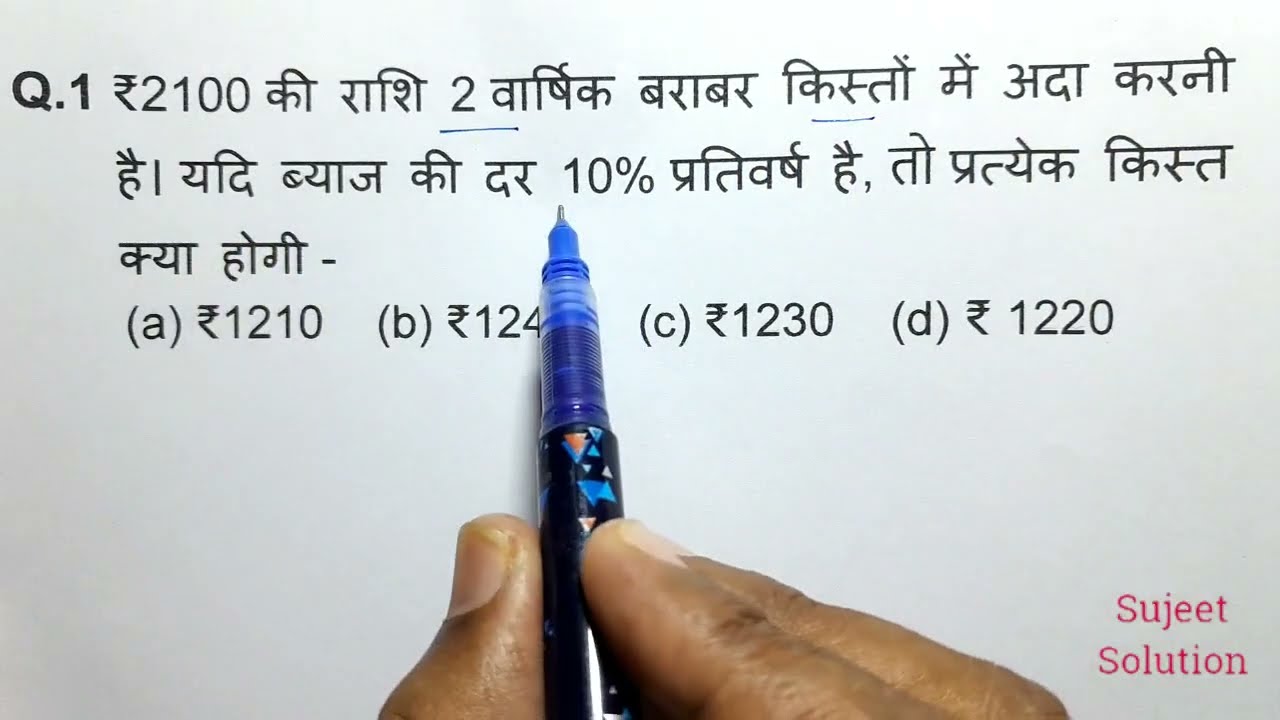 Q.1 ₹2100 की राशि 2 वार्षिक बराबर किस्तों में अदा करनी
है। यदि ब्याज की दर 10% प्रतिवर्ष है, तो प्रत्येक किस्त
क्या होगी -
(a) ₹1210 (b) (c) ₹1230 (d) ₹ 1220
Sujeet
Solution